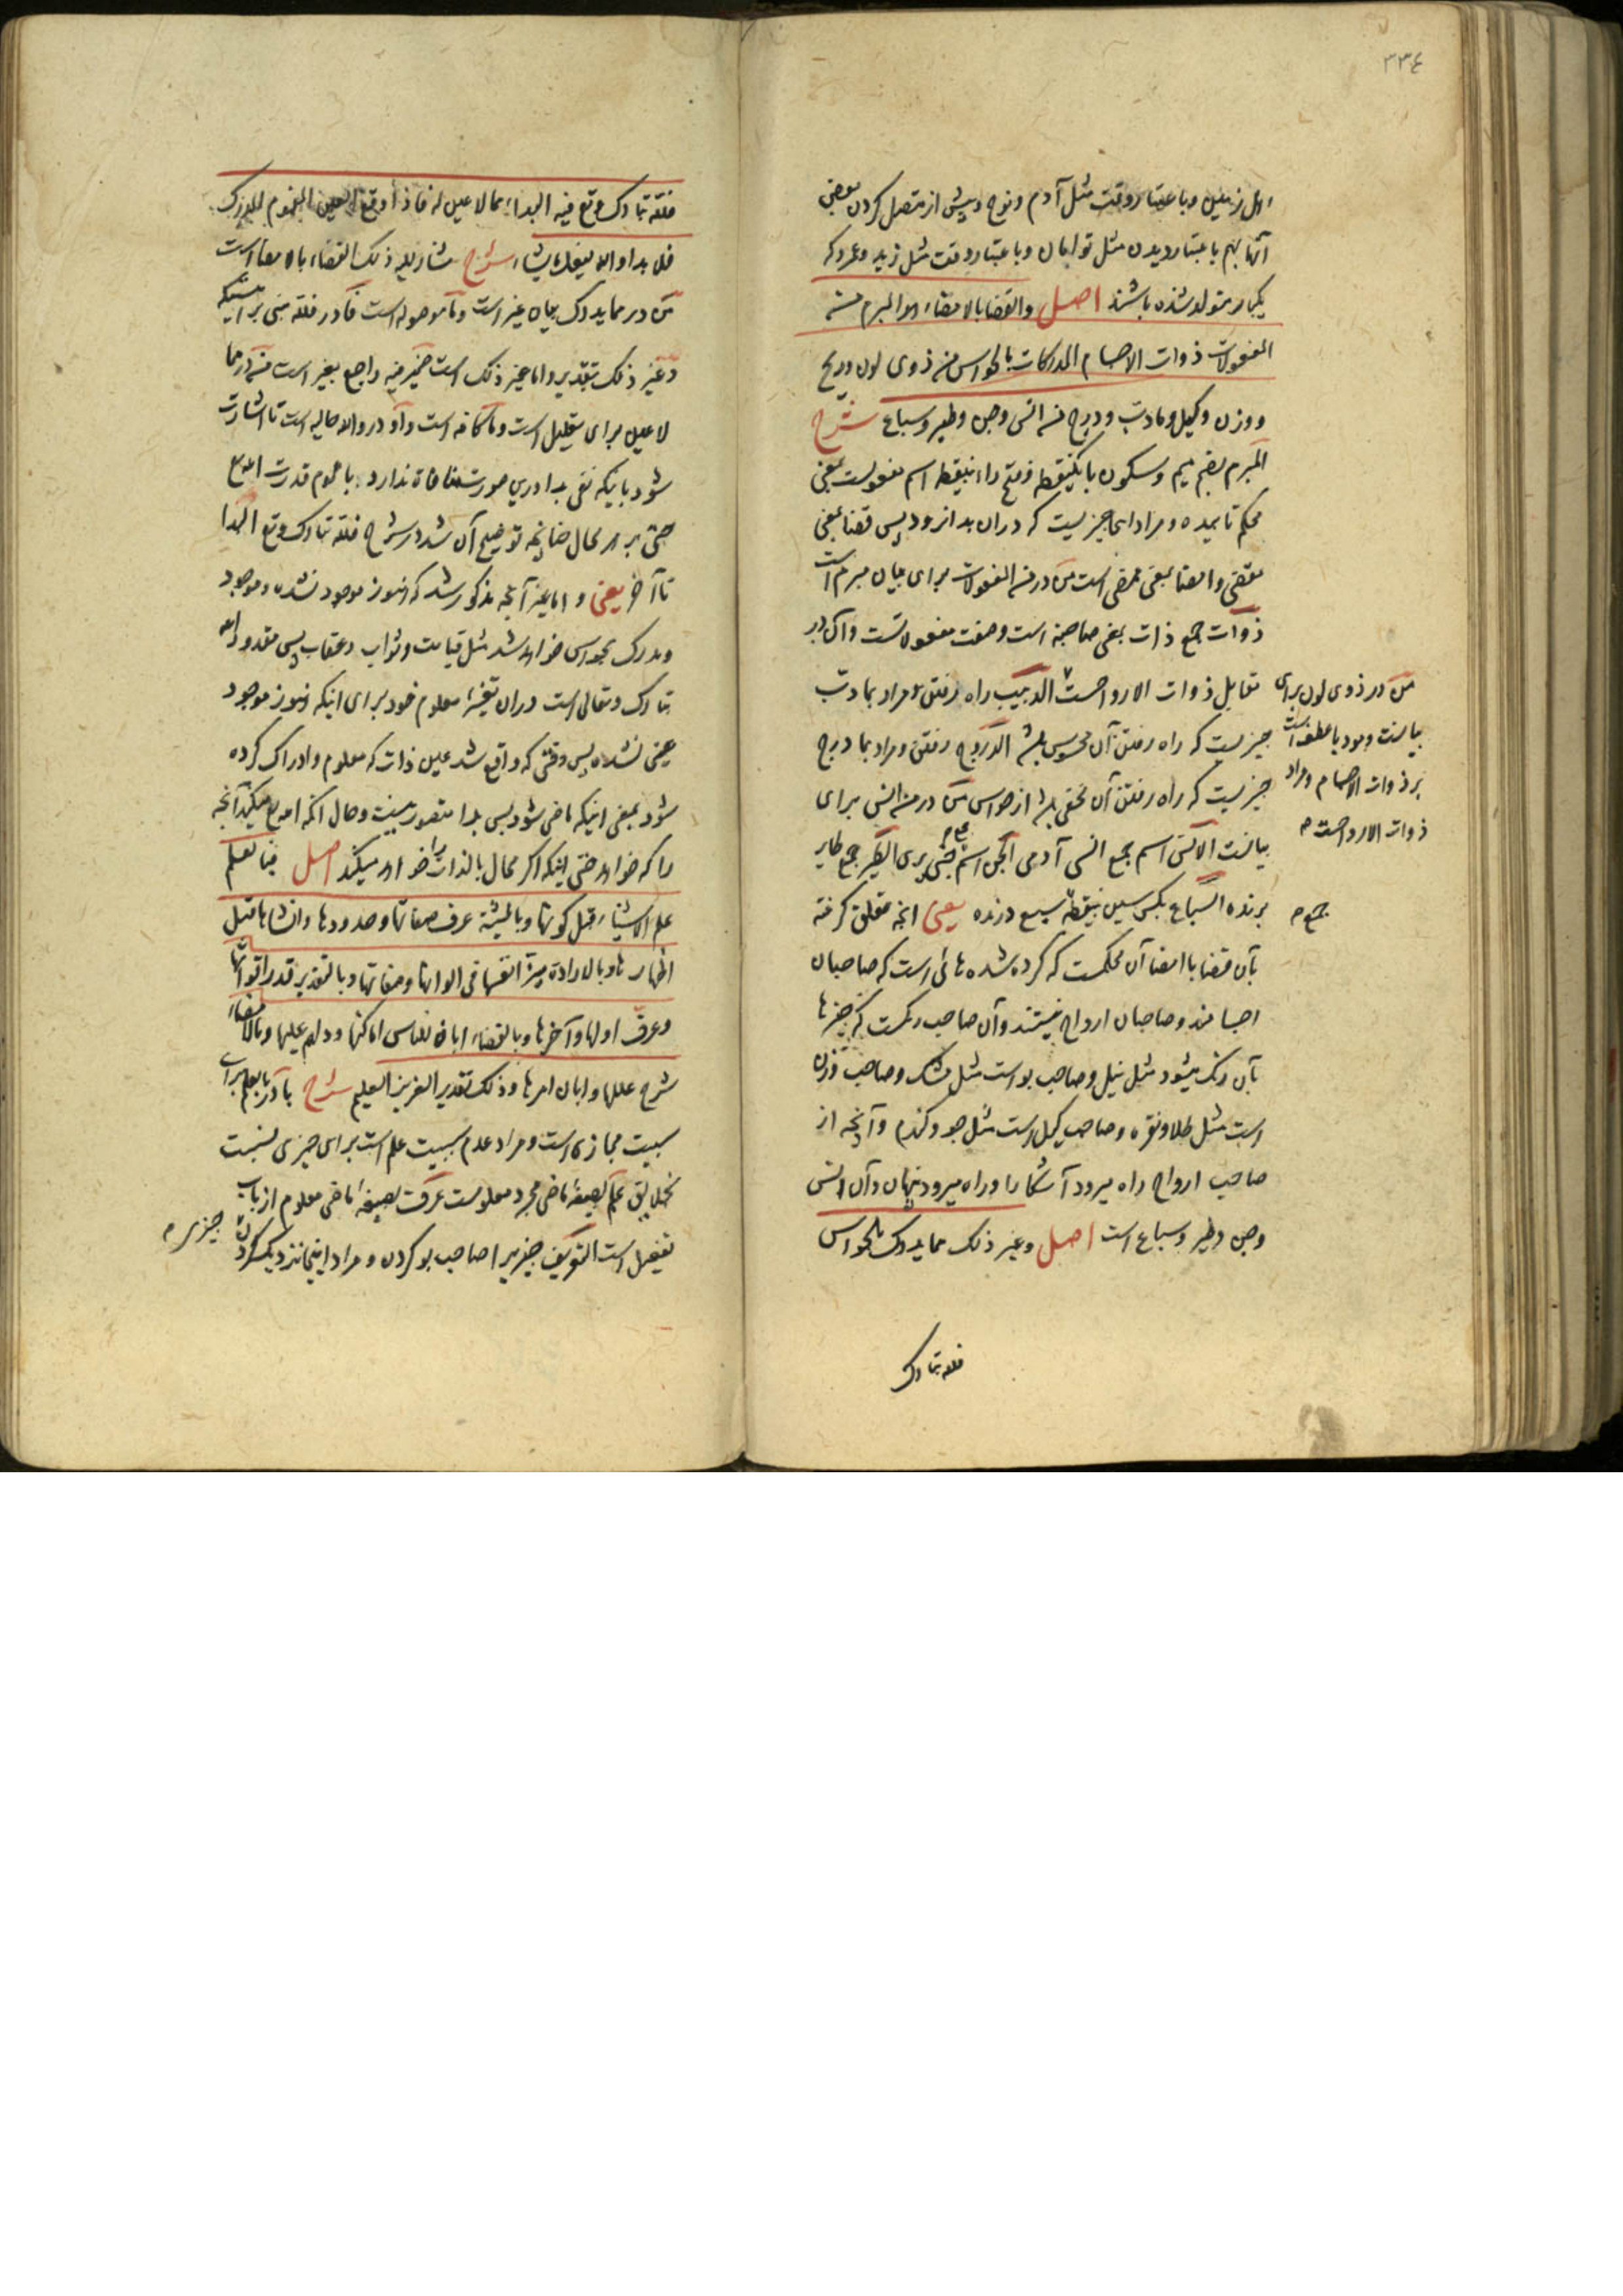 ٣٣٤
اول زمین و باعتبار وقت مثل آدم و نوح و پیش از متصل کردن بعضی
آنها بهم باعتبار دیدن مثل توامان و باعتبار وقت مثل زید و عمرو که
یکبار متولد شده باشند اصل والقضا بالامضاء هو المبرم من
المفعولات ذوات الاجسام المدرکات بالحواس من ذوی لون و ریح
و وزن و کیل و ما دبّ و درج من انس و جن و طیر و سباع شرح
المبرم بضم میم و سکون با یکنقطه و فتح راء بینقطه اسم مفعولست بمعنی
محکم تابیده و مراد اینجا چیزیست که دران بدا نرود پس قضا بمعنی
مقتضی و امضا بمعنی ممضی است من در من المفعولات برای بیان مبرم است
ذوات جمع ذات بمعنی صاحبة است و صفت مفعولاتست و آن در
مقابل ذوات الارواحست الدبیب راه رفتن و مراد بما دبّ
چیزیست که راه رفتن آن محسوس باشد الدروج رفتن و مراد بما درج
چیزیست که راه رفتن آن مخفی باشد از حواس من در من انس برای
بیانست الانس اسم جمع انسی آدمی الجن اسم جمع جنی پری الطیر جمع طایر
پرنده السباع بکسر سین بینقطه سبع درنده یعنی آنچه تعلق گرفته
بآن قضا با امضا آن محکمست که کرده شده هائی است که صاحبان
اجسامند و صاحبان ارواح نیستند و آن صاحب رنگست که چیزها
بآن رنگ میشود مثل نیل و صاحب بو است مثل مشک و صاحب وزن
است مثل طلا و نقره و صاحب کیل است مثل جو و گندم و آنچه از
صاحب ارواح راه میرود آشکارا و راه میرود پنهان و آن انس
و جن و طیر و سباع است اصل و غیر ذلک مما یدرک بالحواس
من در ذوی لون برای
بیانست و بود با عطفست
بر ذوات الاجسام و مراد
ذوات الارواحست م
جمع م
فلله تبارک
فلله تبارک و تع فیه البداء مما لا عین له فاذا وقع العین المفهوم المدرک
فلا بدا و الله یفعل ما یشاء شرح مشار الیه ذلک القضاء بالامضا است
من در مما یدرک بیان غیر است و ما موصوله است فا در فلله مبنی بر اینستکه
و غیر ذلک بتقدیر و اما غیر ذلک است ضمیر فیه راجع بغیر است من در مما
لا عین برای تعلیل است و ما کافه است و او در و الله حالیه است تا اشارت
شود باینکه نفی بدا درین صورت منافاة ندارد با عموم قدرت الله تع
حتی بر هر محال چنانچه توضیح آن شد در شرح فلله تبارک و تع البدا
تا آخر یعنی و اما غیر آنچه مذکور شد که هنوز موجود نشده و موجود
و مدرک بحواس خواهد شد مثل قیامت و ثواب و عقاب پس مقدور الله
تبارک و تعالی است دران تغییر معلوم خود برای اینکه هنوز موجود
عینی نشده پس وقتی که واقع شد عین ذات که معلوم و ادراک کرده
شود بمعنی اینکه ماضی شود پس بدا متصور نیست و حال آنکه الله تع میکند آنچه
را که خواهد حتی اینکه اگر محال بالذات را خواهد میکند اصل فبالعلم
علم الاشیاء قبل کونها و بالمشیّة عرف صفاتها و حدودها و انشاها قبل
اظهارها و بالارادة میّز انفسها فی الوانها و صفاتها و بالتقدیر قدر اقواتها
و عرّف اولها و آخرها و بالقضاء ابان للناس اماکنها و دلهم علیها و بالامضاء
شرح عللها و ابان امرها و ذلک تقدیر العزیز العلیم شرح با در بالعلم برای
سببیت مجازی است و مراد عدم سببیت علم است برای چیزی نسبت
بخلایق علم بصیغهٔ ماضی مجرد معلومست عرّف بصیغهٔ ماضی معلوم از باب
تفعیل است التعریف چیزیرا صاحب بو کردن و مراد اینجا نزدیک کردن
چیزی م